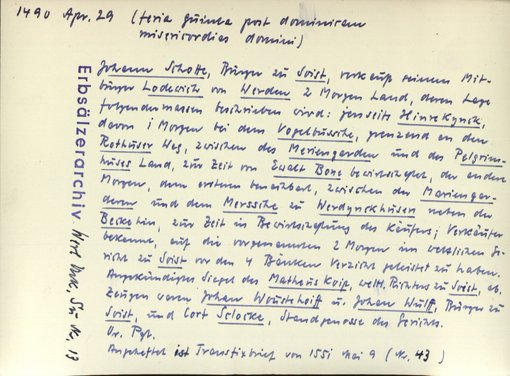 1490 Apr. 29 (feria quinta post dominicam
misericordies domini)
Johann Schotte, Bürger zu Soist, verkauft seinem Mit-
bürger Lodewich von Werden 2 Morgen Land, deren Lage
folgendermassen beschrieben wird: jenseits Hinrekynck,
davon 1 Morgen bei dem Vogelbussche, grenzend an den
Rothuser Weg, zwischen des Mariengarden und des Pelgrim-
huses Land, zur Zeit von Ewalt Bone bewirtschaftet, der andere
Morgen, dem ersteren benachbart, zwischen der Mariengar-
deren und dem Merssche zu Werdynckhusen neben der
zur Zeit in Bewirtschaftung des Käufers; Verkäufer
bekennt, auf die vorgenannten 2 Morgen im weltlichen Ge-
richt zu Soist vor den 4 Bänken Verzicht geleistet zu haben.
Angekündigtes Siegel des Matheus weltl. Richters zu Soist, ab.
Zeugen waren Johan u. Johan Wulff, Bürger zu
Soist, und Cort Sclocke, Standgenosse des Gerichts.
Or. Pgt.
Angeheftet ist Transfixbrief von 1551 Mai 9 (Nr. 43)
Erbsälzerarchiv Werl Urk.